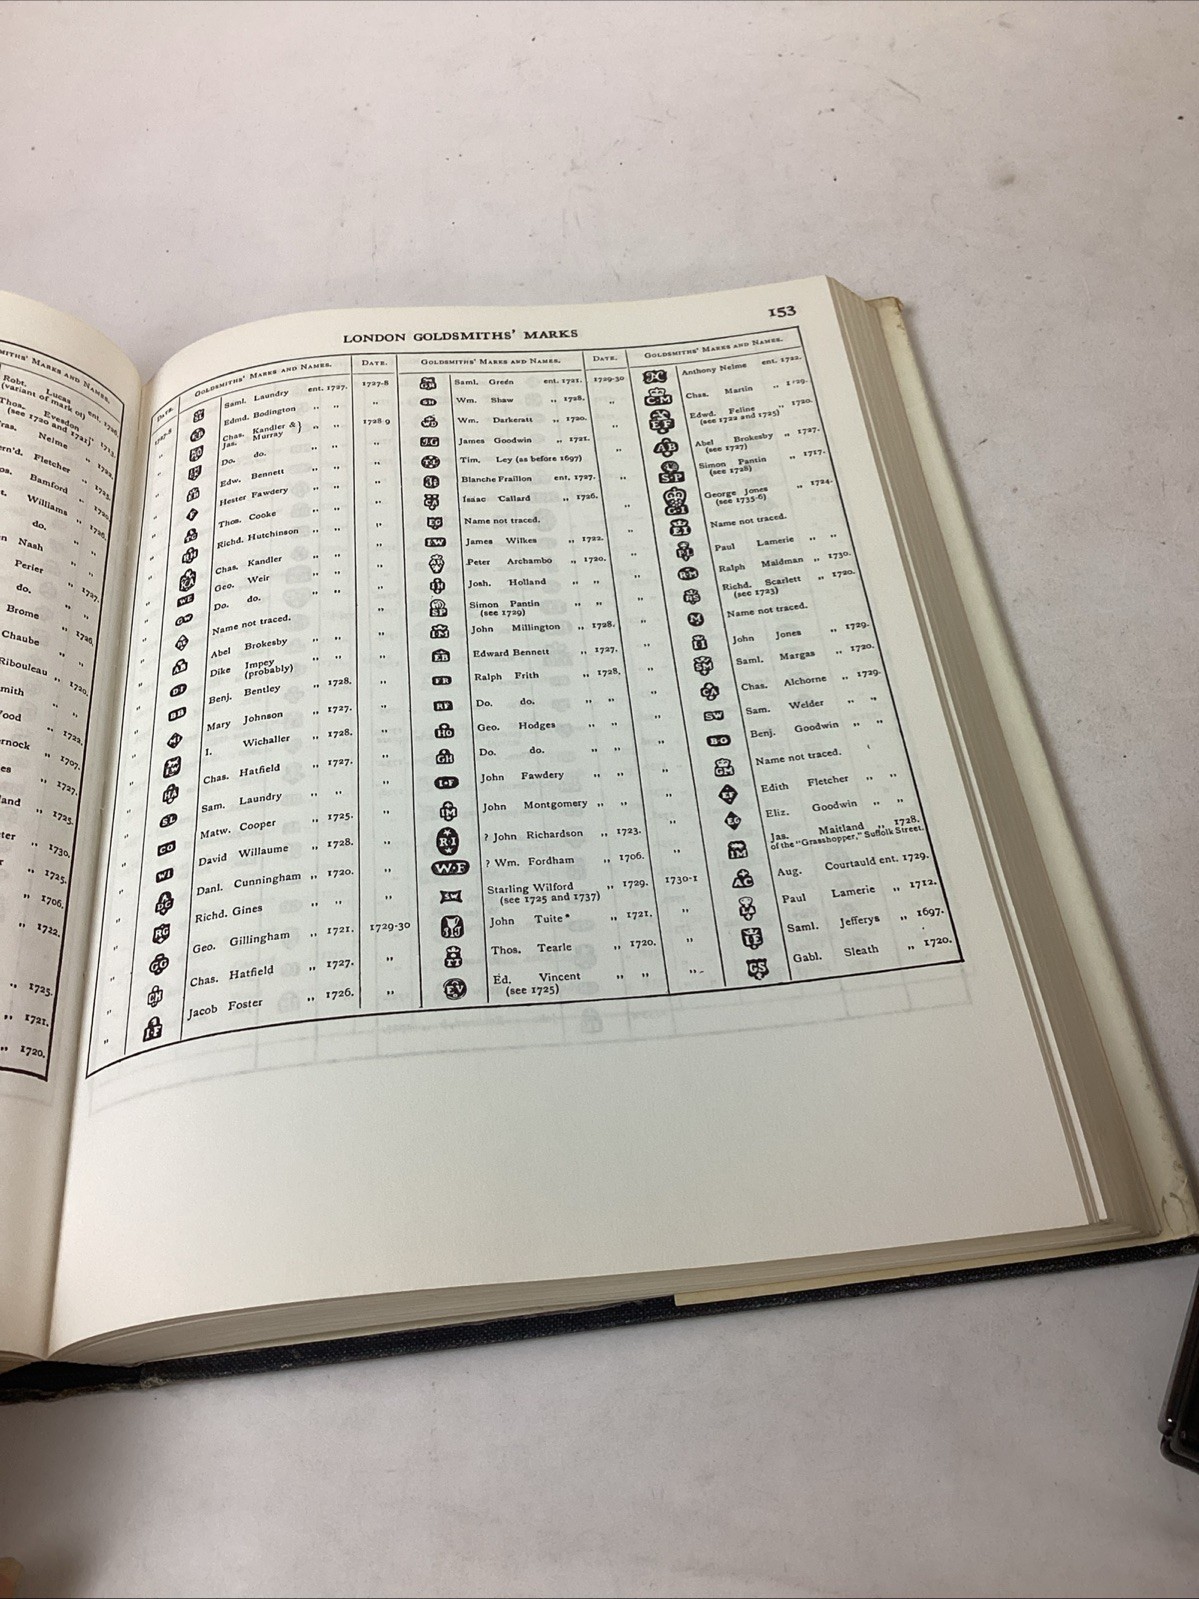 Robt. Lucas
(variant of mark of) ent. 1726.
Thos. Evesdon
(see 1720 and 1721) 1713.
Nelme " 1722.
Fletcher " 1725.
Bamford " 1720.
Williams " 1726.
do. " "
Nash " "
Perier " 1727.
do. " "
Brome " 1726.
Chaube " "
Ribouleau " 1720.
1722.
1707.
1727.
" 1725.
" 1730.
" 1725.
" 1706.
" 1722.
" 1725.
" 1721.
" 1720.
153
LONDON GOLDSMITHS' MARKS
DATE.
GOLDSMITHS' MARKS AND NAMES.
1727-8
Saml. Laundry ent. 1727.
" Edmd. Bodington " "
" Chas. Kandler &
Jas. Murray } " "
" Do. do. " "
" Edw. Bennett " "
" Hester Fawdery " "
" Thos. Cooke " "
" Richd. Hutchinson " "
" Chas. Kandler " "
" Geo. Weir " "
" Do. do. " "
" Name not traced.
" Abel Brokesby " "
" Dike Impey
(probably) " "
" Benj. Bentley " 1728.
" Mary Johnson " 1727.
" I. Wichaller " 1728.
" Chas. Hatfield " 1727.
" Sam. Laundry " "
" Matw. Cooper " 1725.
" David Willaume " 1728.
" Danl. Cunningham " 1720.
" Richd. Gines " "
" Geo. Gillingham " 1721.
" Chas. Hatfield " 1727.
" Jacob Foster " 1726.
DATE.
GOLDSMITHS' MARKS AND NAMES.
1727-8 Saml. Green ent. 1721.
" Wm. Shaw " 1728.
1728-9 Wm. Darkeratt " 1720.
" James Goodwin " 1721.
" Tim. Ley (as before 1697)
" Blanche Fraillon ent. 1727.
" Isaac Callard " 1726.
" Name not traced.
" James Wilkes " 1722.
" Peter Archambo " 1720.
" Josh. Holland " "
" Simon Pantin
(see 1729) " "
" John Millington " 1728.
" Edward Bennett " 1727.
" Ralph Frith " 1728.
" Do. do. " "
" Geo. Hodges " "
" Do. do. " "
" John Fawdery " "
" John Montgomery " "
" ? John Richardson " 1723.
" ? Wm. Fordham " 1706.
" Starling Wilford
(see 1725 and 1737) " 1729.
1729-30 John Tuite* " 1721.
" Thos. Tearle " 1720.
" Ed. Vincent
(see 1725) " "
DATE.
GOLDSMITHS' MARKS AND NAMES.
1729-30 Anthony Nelme ent. 1722.
" Chas. Martin " 1729.
" Edwd. Feline
(see 1722 and 1725) " 1720.
" Abel Brokesby
(see 1727) " 1727.
" Simon Pantin
(see 1728) " 1717.
" George Jones
(see 1735-6) " 1724.
" Name not traced.
" Paul Lamerie " "
" Ralph Maidman " 1730.
" Richd. Scarlett
(see 1723) " 1720.
" Name not traced.
" John Jones " 1729.
" Saml. Margas " 1720.
" Chas. Alchorne " 1729.
" Sam. Welder " "
" Benj. Goodwin " "
" Name not traced.
" Edith Fletcher " "
" Eliz. Goodwin " "
" Jas. Maitland " 1728.
of the "Grasshopper," Suffolk Street.
1730-1 Aug. Courtauld ent. 1729.
" Paul Lamerie " 1712.
" Saml. Jefferys " 1697.
" Gabl. Sleath " 1720.